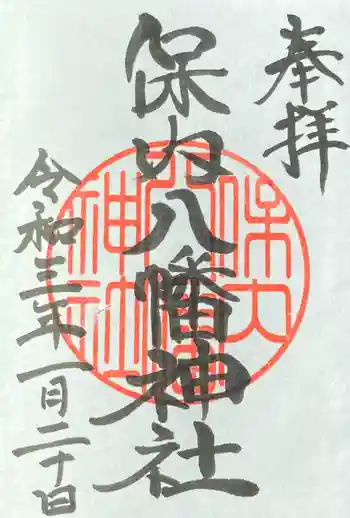 奉拝
保内八幡神社
令和三年一月二十日
保内八幡神社